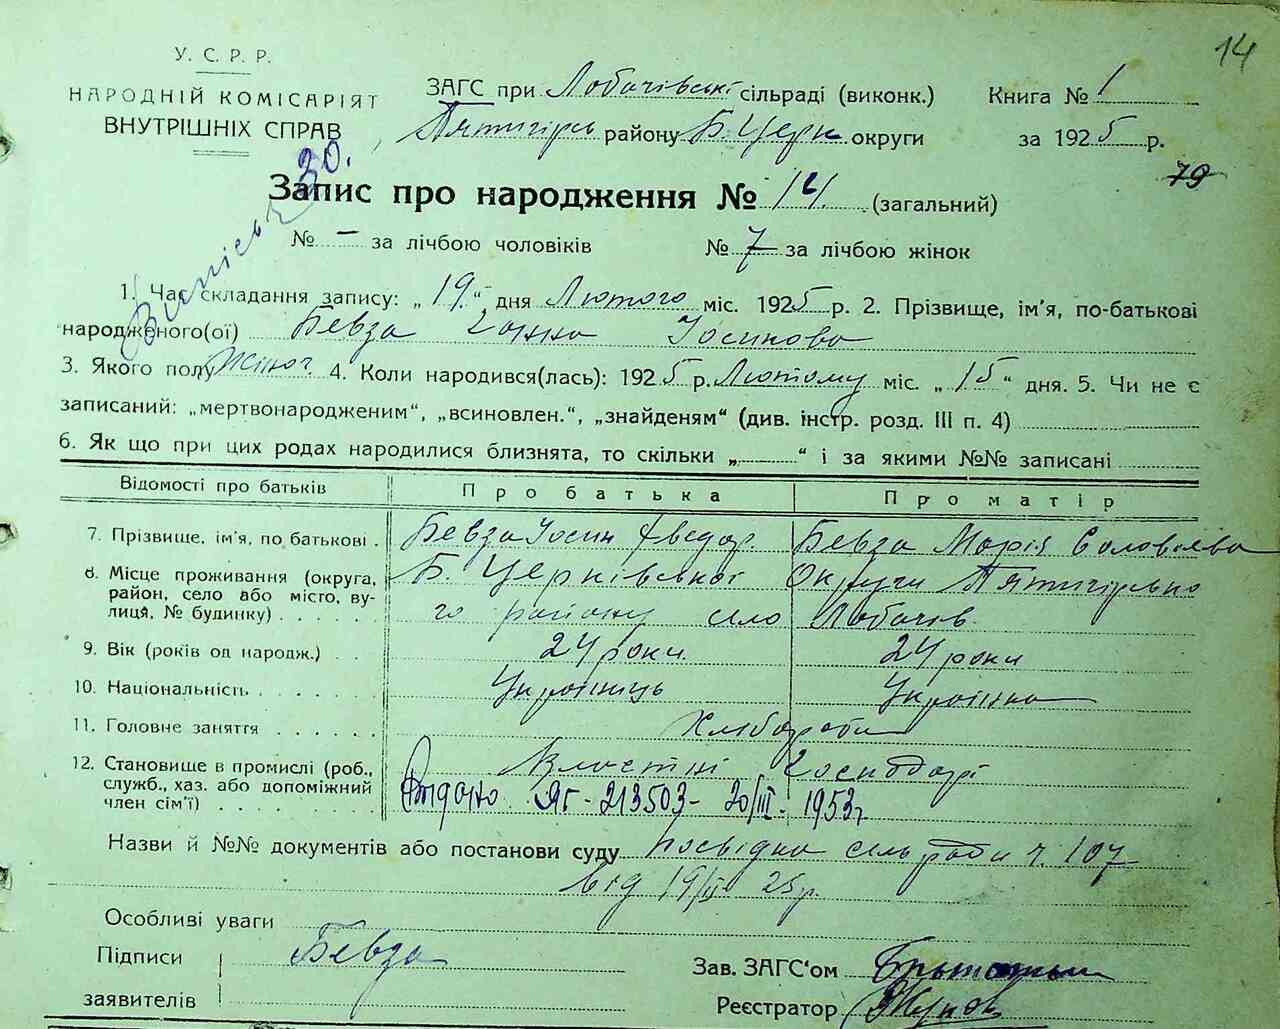 14
У. С. Р. Р.
НАРОДНІЙ КОМІСАРІЯТ
ВНУТРІШНІХ СПРАВ
ЗАГС при Лобачівські сільраді (виконк.) Книга № 1
Пятигірськ району Б. Церк. округи за 1925 р.
79
Запис про народження № 14. (загальний)
№ – за лічбою чоловіків № 7 за лічбою жінок
30.
1. Час складання запису: „19.“ дня Лютого міс. 1925 р. 2. Прізвище, ім'я, по-батькові
народженого(ої) Бевза Ганна Йосипова
3. Якого полу Жіноч. 4. Коли народився(лась): 1925 р. Лютому міс. „15“ дня. 5. Чи не є
записаний: „мертвонародженим“, „всиновлен.“, „знайденям“ (див. інстр. розд. III п. 4)
6. Як що при цих родах народилися близнята, то скільки „ “ і за якими №№ записані
Відомості про батьків Про батька Про матір
7. Прізвище, ім'я, по батькові. Бевза Йосип Хведор. Бевза Марія Соловієва
8. Місце проживання (округа, район, село або місто, вулиця, № будинку) Б. Церківської Округи Пятигірсько
го району село Лобачів.
9. Вік (років од народж.) 24 роки. 24 роки
10. Національність Українець Українка
11. Головне заняття Хлібороби
12. Становище в промислі (роб., служб., хаз. або допоміжний член сім'ї) Власні Господарі
Видано ЯГ-213503- 20/III- 1953г.
Назви й №№ документів або постанови суду посвідка сельради ч. 107
від 19/II 25р.
Особливі уваги
Підписи Бевза
заявителів
Зав. ЗАГС'ом
Реєстратор